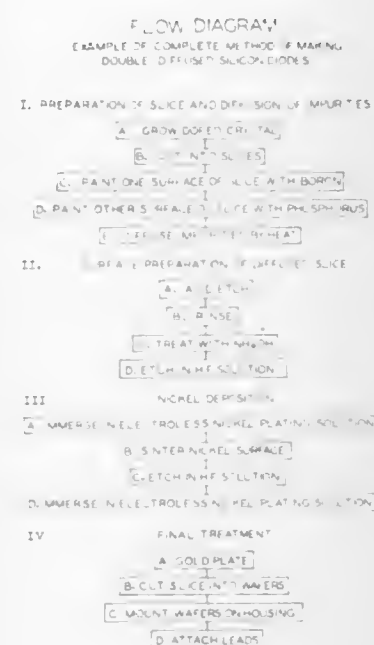 FLOW DIAGRAM
EXAMPLE OF COMPLETE METHOD OF MAKING
DOUBLE DIFFUSED SILICON DIODES
I. PREPARATION OF SLICE AND DIFFUSION OF IMPURITIES
A. GROW DOPED CRYSTAL
B. CUT INTO SLICES
C. PAINT ONE SURFACE OF SLICE WITH BORON
D. PAINT OTHER SURFACE OF SLICE WITH PHOSPHORUS
E. DIFFUSE IMPURITIES BY HEAT
II. PREPARATION OF SLICE
A. ETCH
B. RINSE
C. TREAT WITH NH4OH
D. ETCH IN HF SOLUTION
III NICKEL DEPOSITION
A. IMMERSE IN ELECTROLESS NICKEL PLATING SOLUTION
B. SINTER NICKEL SURFACE
C. ETCH IN HF SOLUTION
D. IMMERSE IN ELECTROLESS NICKEL PLATING SOLUTION
IV FINAL TREATMENT
A. GOLD PLATE
B. CUT SLICE INTO WAFERS
C. MOUNT WAFERS ON HOUSING
D. ATTACH LEADS